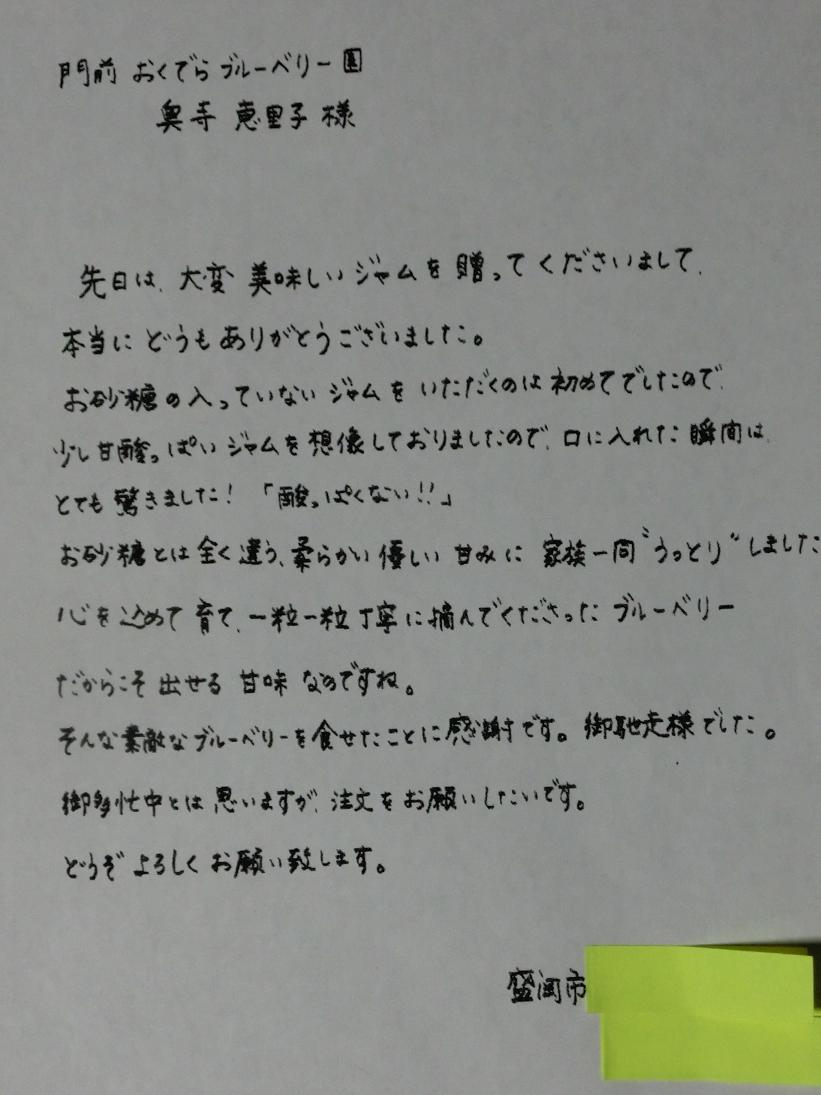 門前 おくでらブルーベリー園
奥寺 恵里子 様
先日は、大変 美味しい ジャムを 贈ってくださいまして、
本当に どうも ありがとうございました。
お砂糖の入っていない ジャムを いただくのは 初めてでしたので、
少し甘酸っぱい ジャムを 想像しておりましたので、口に入れた 瞬間は、
とても 驚きました!「酸っぱくない!!」
お砂糖とは 全く 違う、柔らかい 優しい 甘みに 家族一同“うっとり”しました
心を込めて 育て、一粒一粒 丁寧に摘んでくださった ブルーベリー
だからこそ 出せる 甘味 なのですね。
そんな 素敵な ブルーベリーを 食せたことに 感謝です。御馳走様でした。
御多忙中とは 思いますが、注文を お願いしたいです。
どうぞ よろしく お願い致します。
盛岡市